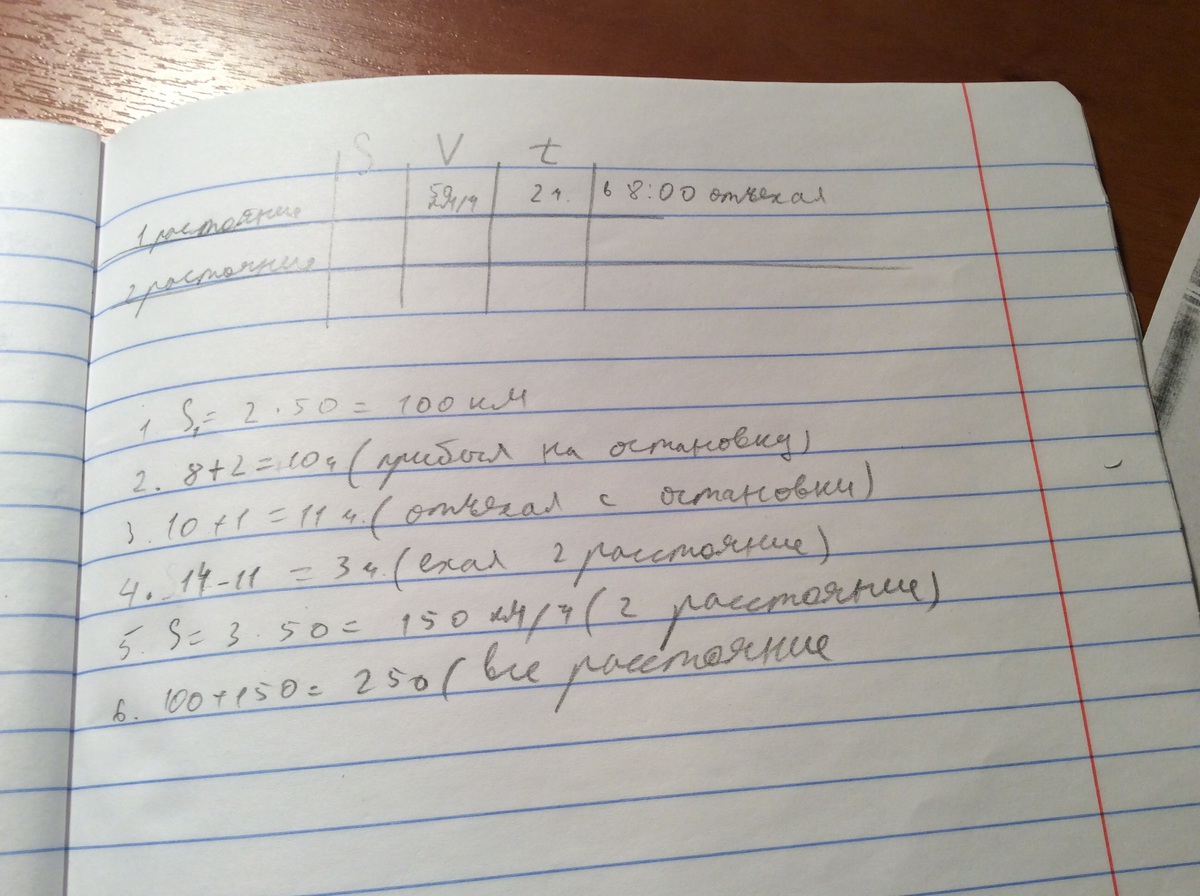 S V t
1 растояние 50 км/ч 2 ч. в 8:00 отъехал
2 растояние
1. S₁= 2 · 50 = 100 км
2. 8+2=10 ч (прибыл на остановку)
3. 10+1=11 ч. (отъехал с остановки)
4. 14-11 = 3 ч. (ехал 2 расстояние)
5. S= 3 · 50 = 150 км/ч (2 расстояние)
6. 100+150= 250 (все расстояние